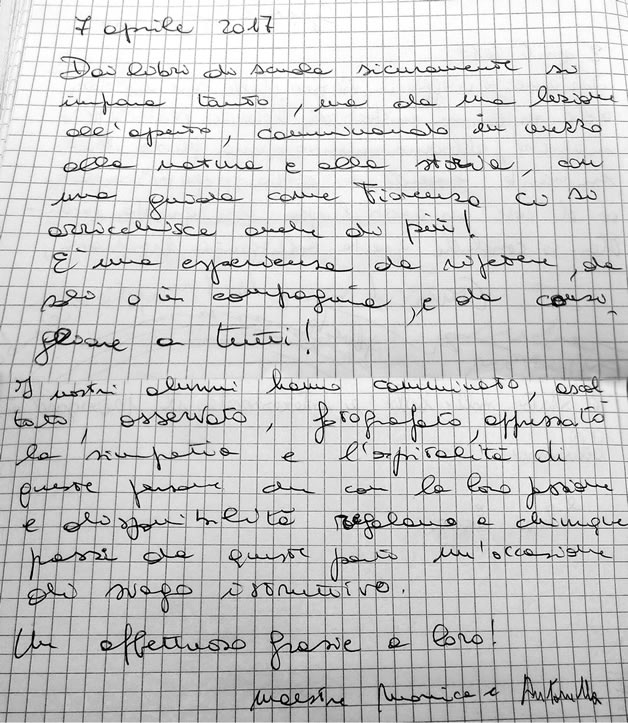 7 aprile 2017
Dai libri di scuola sicuramente si
impara tanto, ma da una lezione
all'aperto, camminando in mezzo
alla natura e alla storia, con
una guida come Fiorenzo ci si
arricchisce anche di più!
E' una esperienza da ripetere, da
soli o in compagnia, e da consi-
gliare a tutti!
I nostri alunni hanno camminato, ascol
tato, osservato, fotografato, apprezzato
la simpatia e l'ospitalità di
queste persone che con la loro passione
e disponibilità regalano a chiunque
passi da queste parti un'occasione
di svago istruttivo.
Un affettuoso grazie a loro!
maestre Monica e Antonella